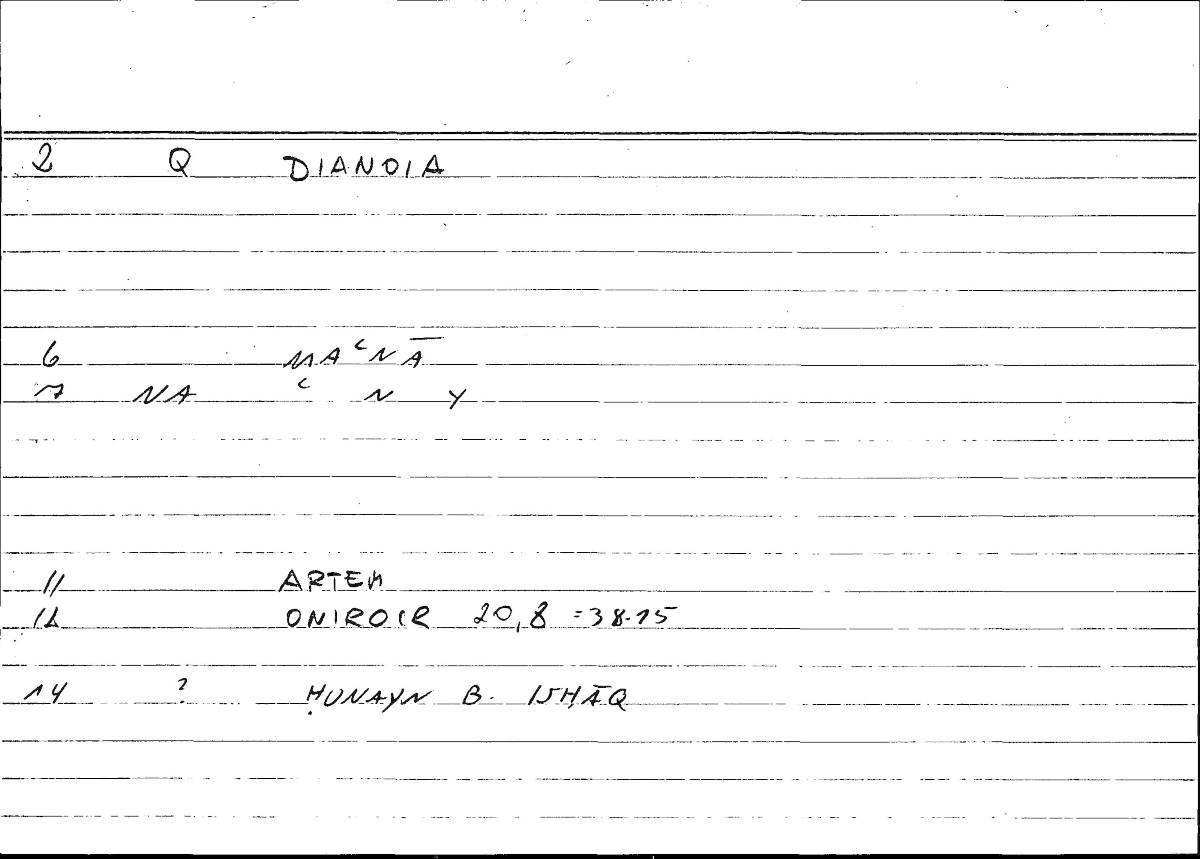 2 Q DIANOIA
6 MAʿNĀ
7 NA ʿ N Y
11 ARTEM
12 ONIROCR 20,8 = 38.15
14 ? ḤUNAYN B. ISḤĀQ